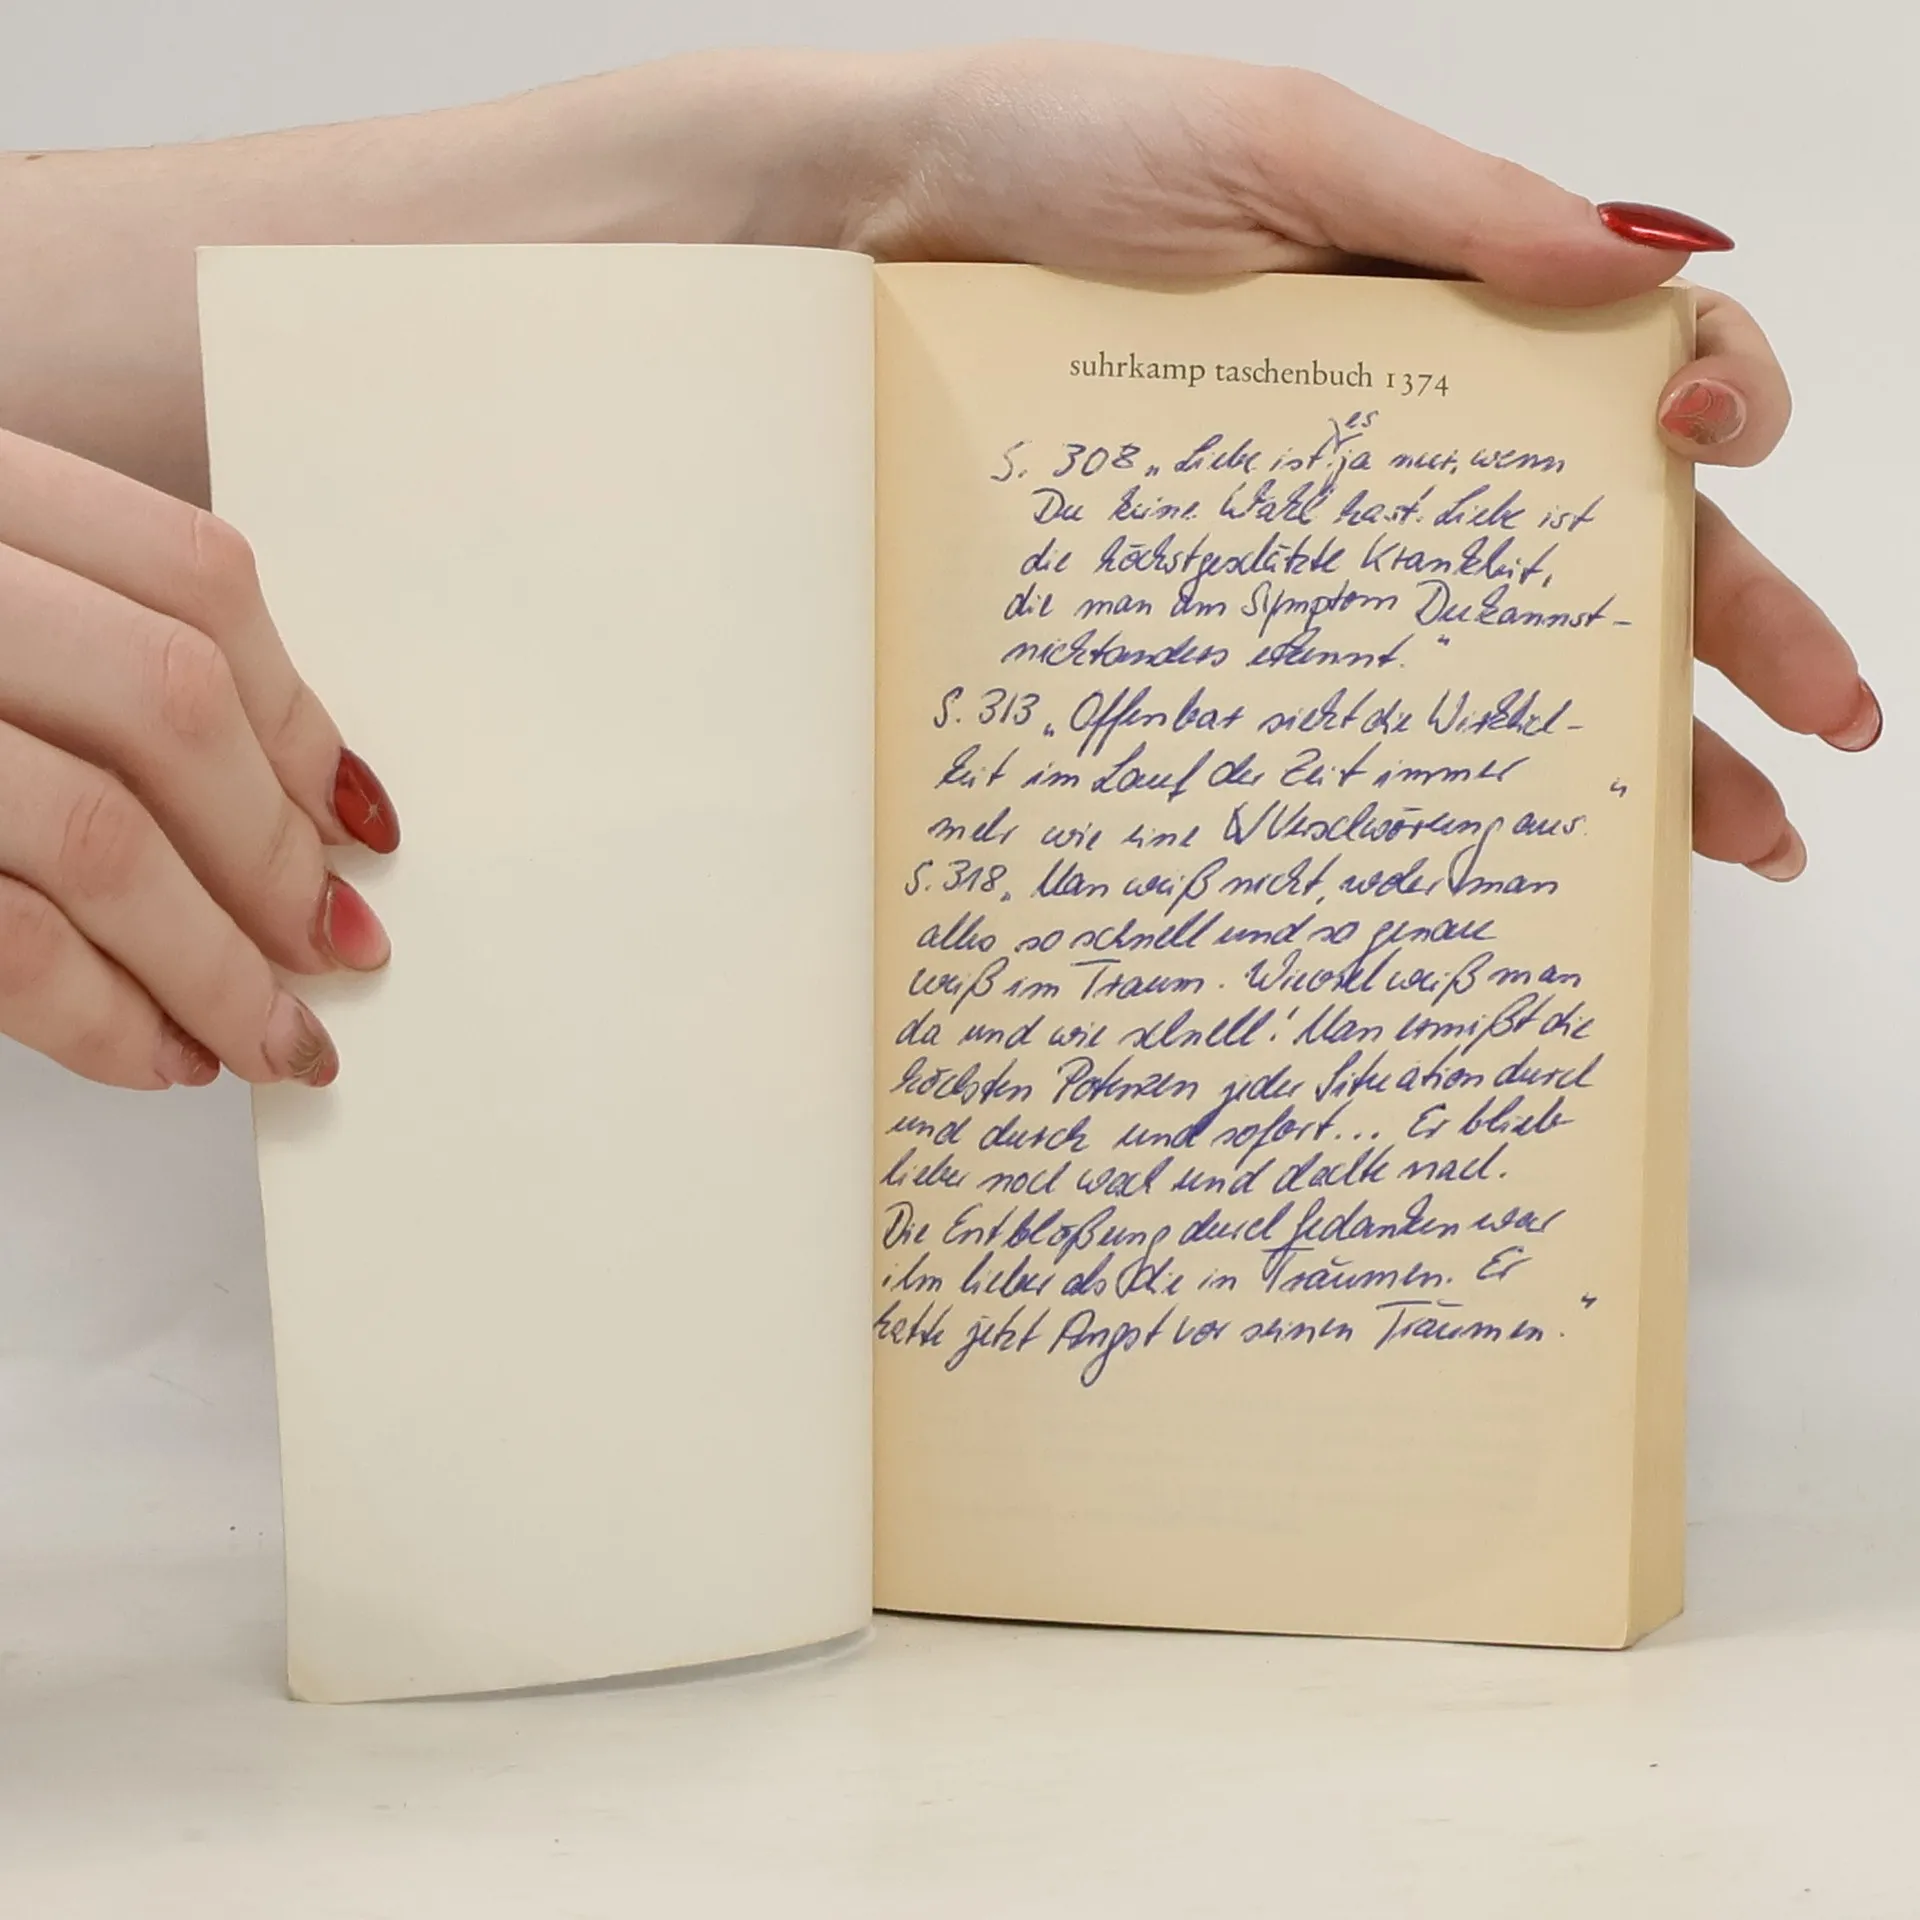 suhrkamp taschenbuch 1374
es
S. 308 „Liebe ist ja nur, wenn
Du keine Wahl hast. Liebe ist
die höchstgeschätzte Krankheit,
die man am Symptom Dukannst-
nichtanders erkennt."
S. 313 „Offenbar sieht die Wirklich-
keit im Lauf der Zeit immer
mehr wie eine Verschwörung aus."
S. 318 „Man weiß nicht, woher man
alles so schnell und so genau
weiß im Traum. Wieviel weiß man
da und wie schnell! Man ermißt die
höchsten Potenzen jeder Situation durch
und durch und sofort... Er blieb
lieber noch wach und dachte nach.
Die Entblößung durch Gedanken war
ihm lieber als die in Träumen. Er
hatte jetzt Angst vor seinen Träumen."